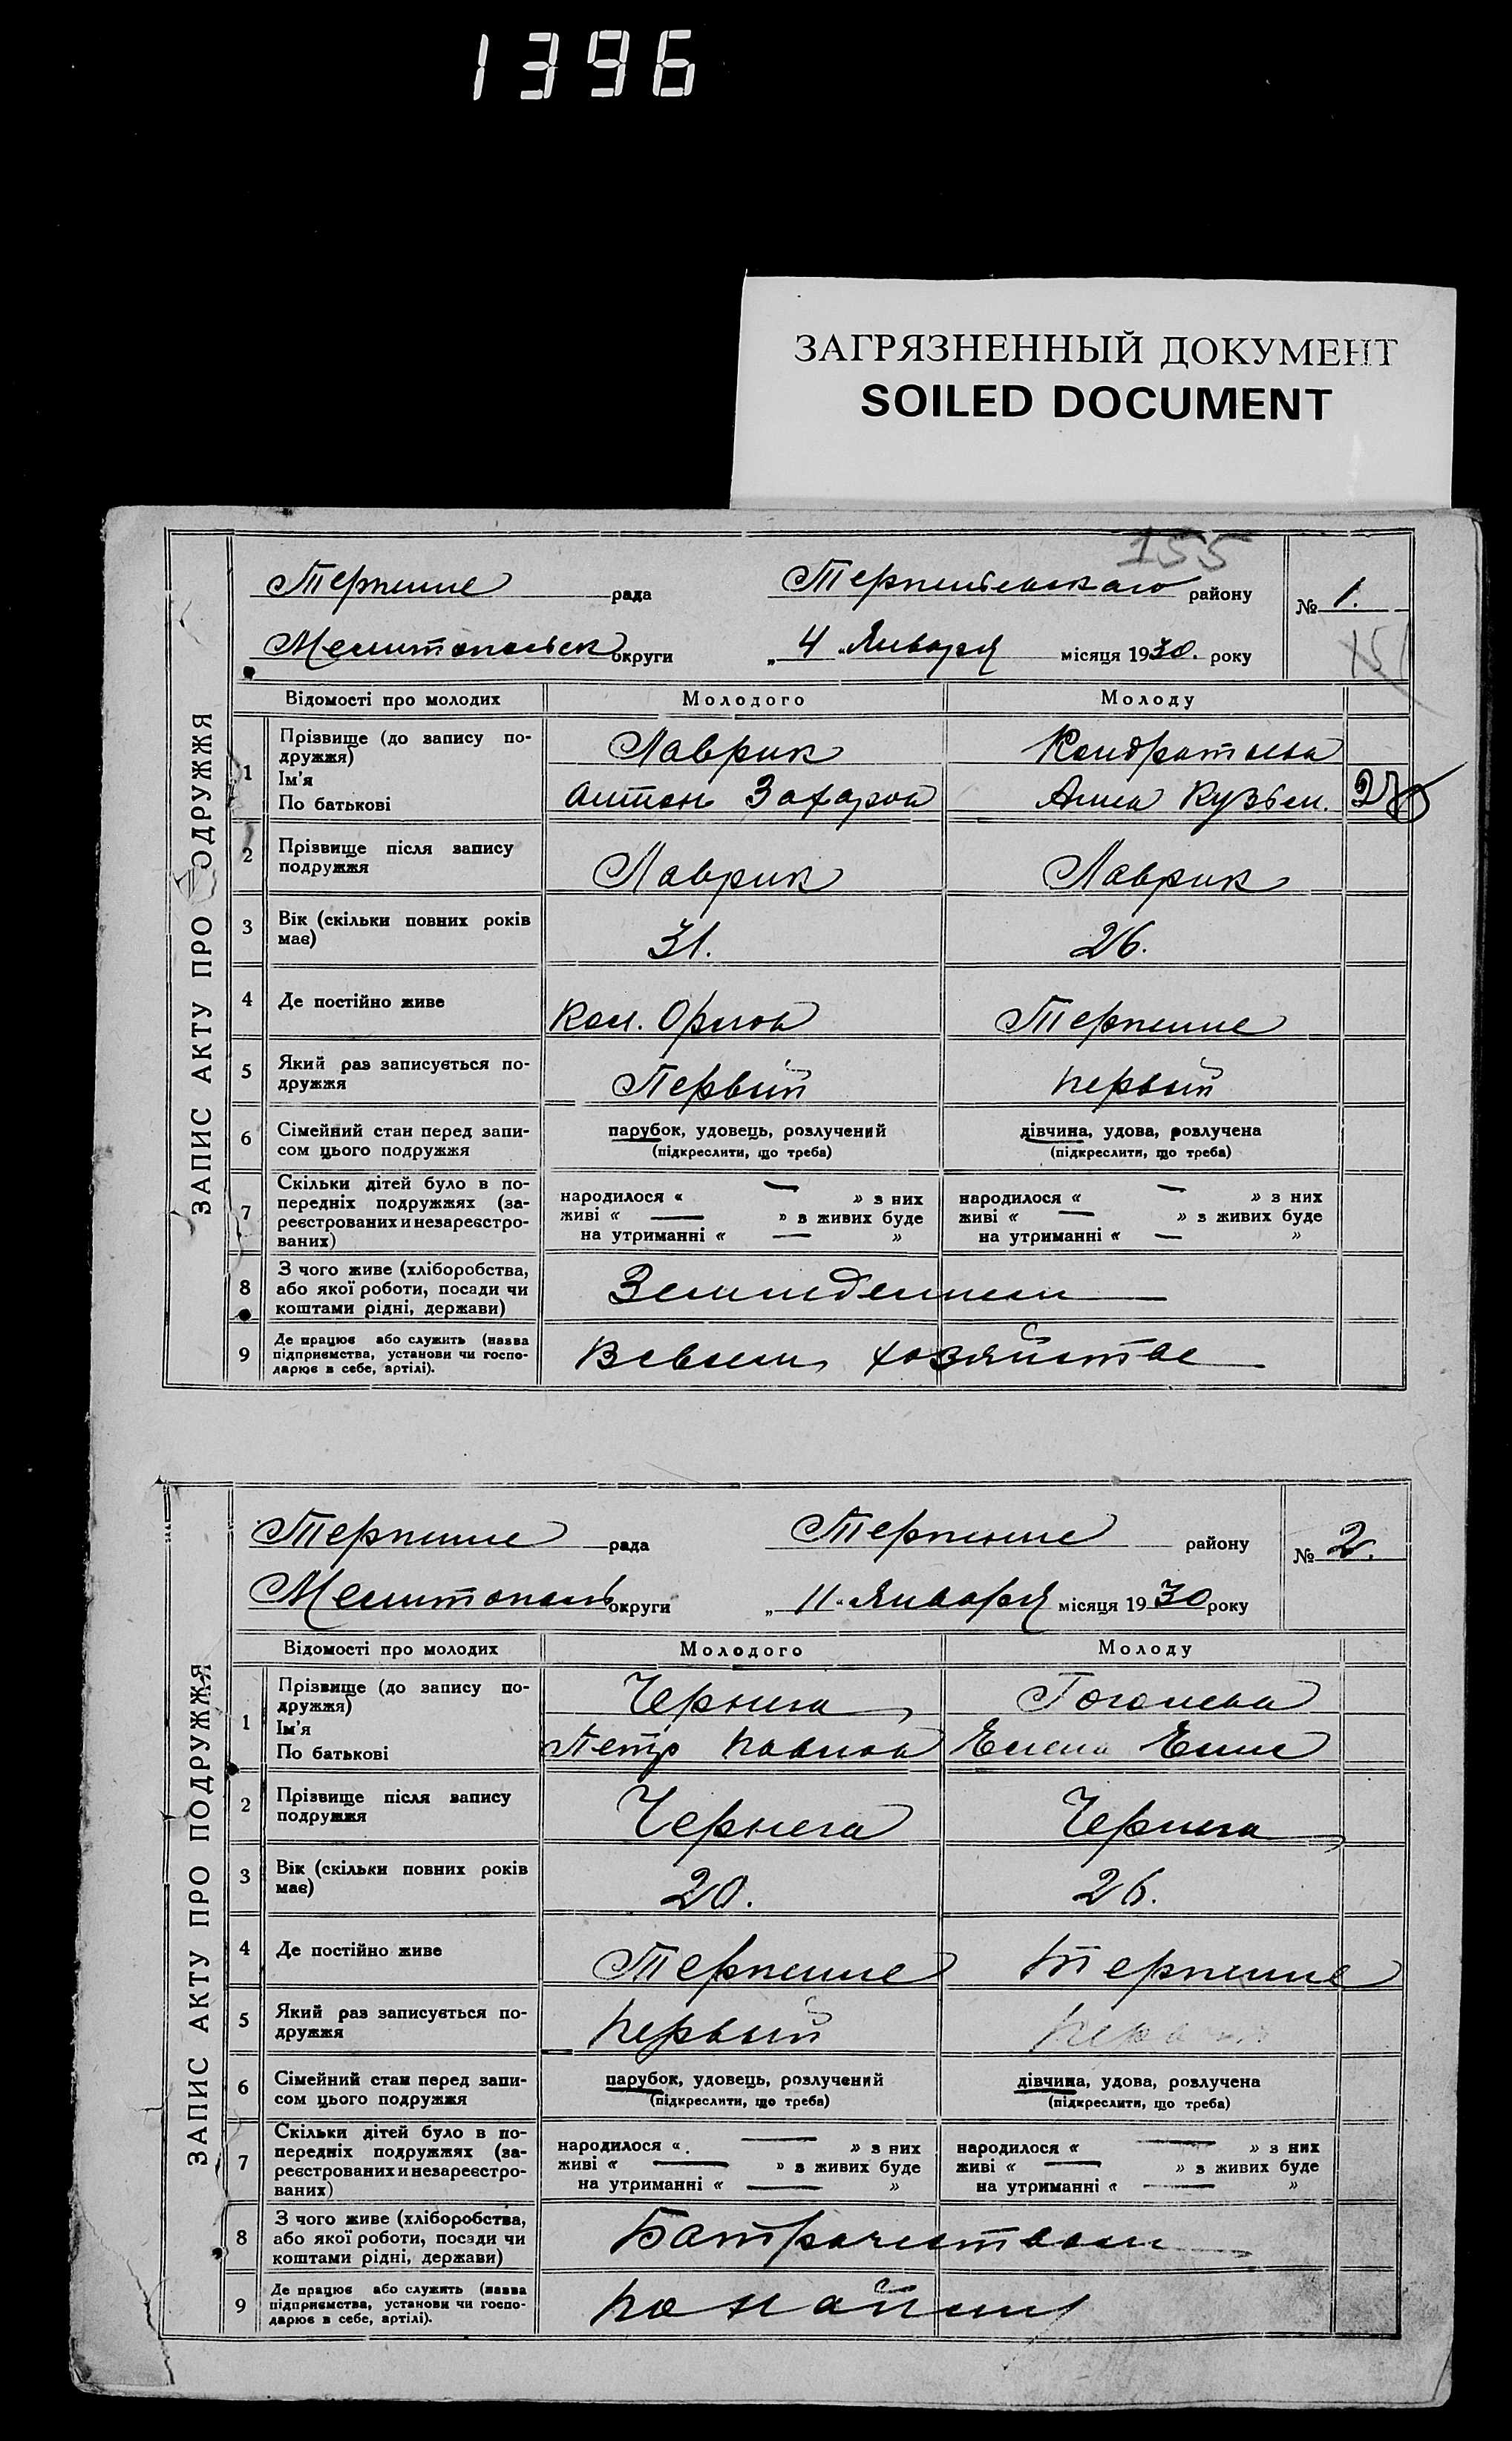 1396
ЗАГРЯЗНЕННЫЙ ДОКУМЕНТ
SOILED DOCUMENT
155
ЗАПИС АКТУ ПРО ПОДРУЖЖЯ
Терпение рада района № 1.
Мелитопольск округи „ 4 “ Января місяця 1930. року
Відомості про молодих Молодого Молоду
1 Прізвище (до запису по-
дружжя) Лаврик Кондратьева
Ім'я
По батькові Антон Захаров Анна Кузьм.
2 Прізвище після запису
подружжя Лаврик Лаврик
3 Вік (скільки повних років
має) 31. 26.
4 Де постійно живе Кол. Орлов Терпение
5 Який раз записується по-
дружжя Первый первый
6 Сімейний стан перед запи-
сом цього подружжя парубок, удовець, розлучений дівчина, удова, розлучена
(підкреслити, що треба) (підкреслити, що треба)
7 Скільки дітей було в по-
передніх подружжях (за-
реєстрованих и незареєстро-
ваних)
народилося « — » з них народилося « — » з них
живі « — » з живих буде живі « — » з живих буде
на утриманні « — » на утриманні « — »
8 З чого живе (хліборобства,
або якої роботи, посади чи
коштами рідні, держави) Земледелием
9 Де працює або служить (назва
підприємства, установи чи госпо-
дарює в себе, артілі). В своем хозяйстве
ЗАПИС АКТУ ПРО ПОДРУЖЖЯ
Терпение рада Терпение району № 2.
Мелитополь округи „ 11 “ Января місяця 1930 року
Відомості про молодих Молодого Молоду
1 Прізвище (до запису по-
дружжя) Чернега Гоголева
Ім'я
По батькові Петр Павлов Елена
2 Прізвище після запису
подружжя Чернега Чернега
3 Вік (скільки повних років
має) 20. 26.
4 Де постійно живе Терпение Терпение
5 Який раз записується по-
дружжя первый первый
6 Сімейний стан перед запи-
сом цього подружжя парубок, удовець, розлучений дівчина, удова, розлучена
(підкреслити, що треба) (підкреслити, що треба)
7 Скільки дітей було в по-
передніх подружжях (за-
реєстрованих и незареєстро-
ваних)
народилося « — » з них народилося « — » з них
живі « — » з живих буде живі « — » з живих буде
на утриманні « — » на утриманні « — »
8 З чого живе (хліборобства,
або якої роботи, посади чи
коштами рідні, держави) Батрачеством
9 Де працює або служить (назва
підприємства, установи чи госпо-
дарює в себе, артілі). по найму